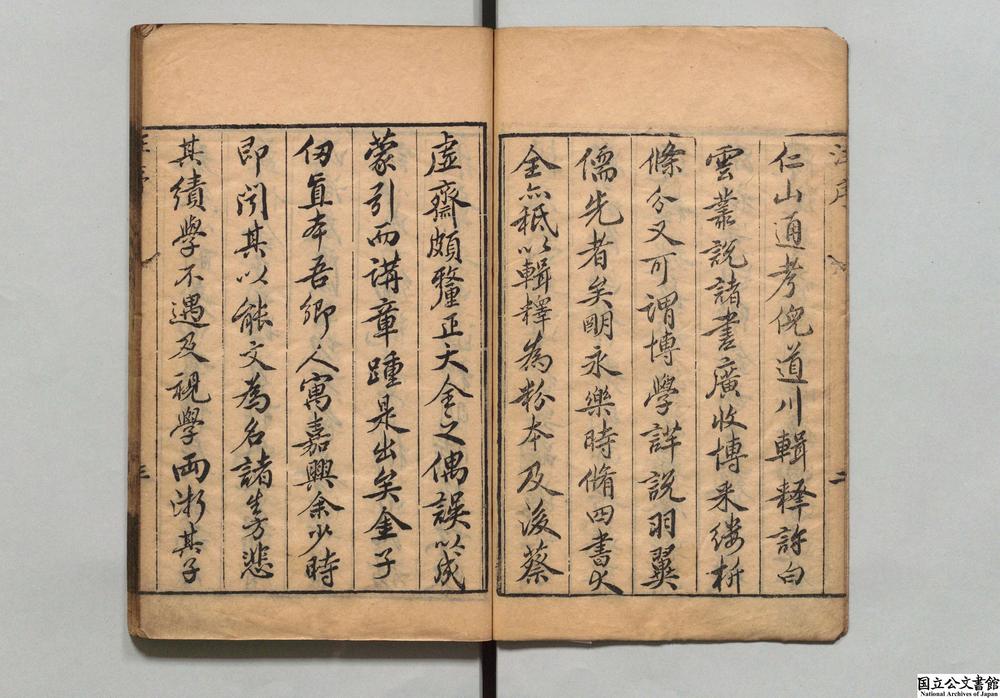 仁山通考倪道川輯釋許白
雲叢說諸書廣收博采縷析
條分又可謂博學詳說羽翼
儒先者矣明永樂時脩四書大
全亦秪以輯釋為粉本及後蔡
虛齋頗釐正大全之偶誤以成
蒙引而講章踵是出矣金子
仞直本吾鄉人寓嘉興余少時
即聞其以能文為名諸生方悲
其績學不遇及視學兩浙其子
国立公文書館
National Archives of Japan